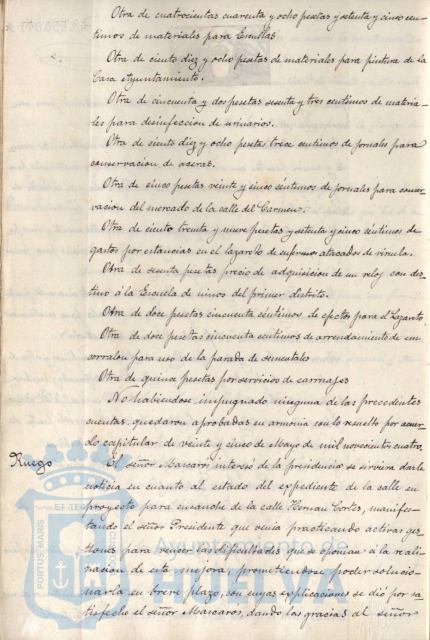 Otra de cuatrocientas cuarenta y ocho pesetas y setenta y cinco cen-
timos de materiales para Escuelas.
Otra de ciento diez y ocho pesetas de materiales para pintura de la
Casa Ayuntamiento.
Otra de cincuenta y dos pesetas sesenta y tres centimos de materia-
les para desinfeccion de urinarios.
Otra de ciento diez y ocho pesetas trece centimos de jornales para
conservacion de aceras.
Otra de cinco pesetas veinte y cinco céntimos de jornales para conser-
vacion del mercado de la calle del Carmen.
Otra de ciento treinta y nueve pesetas y setenta y cinco centimos de
gastos por estancias en el lazareto de enfermos atacados de viruela.
Otra de sesenta pesetas precio de adquisicion de un reloj con des-
tino á la Escuela de niños del primer distrito.
Otra de doce pesetas cincuenta céntimos de efectos para el Lazareto
Otra de doce pesetas cincuenta centimos de arrendamiento de un
corralon para uso de la parada de sementales
Otra de quince pesetas por servicios de carruajes
No habiendose impugnado ninguna de las precedentes
cuentas, quedaron aprobadas en armonia con lo resuelto por acuer-
do capitular de veinte y cinco de Mayo de mil novecientos cuatro.
Ruego
El señor Mascaros interesó de la presidencia se sirviera darle
noticia en cuanto al estado del expediente de la calle en
proyecto para ensanche de la calle Hernan Cortes, manifes-
tando el señor Presidente que venia practicando activas ges-
tiones para vencer las dificultades que se oponian á la reali-
zacion de esta mejora, prometiendose poder solucio-
narla en breve plazo, con cuyas explicaciones se dió por sa-
tisfecho el señor Mascaros, dando las gracias al señor
PORTUS MARIS
ET TER
CUSTO
Ayuntamiento de
HUELVA